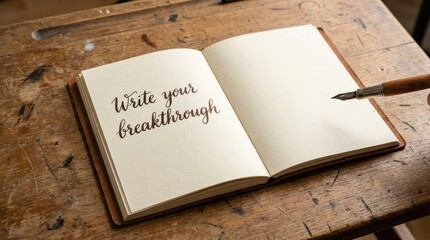 Write your
breakthrough